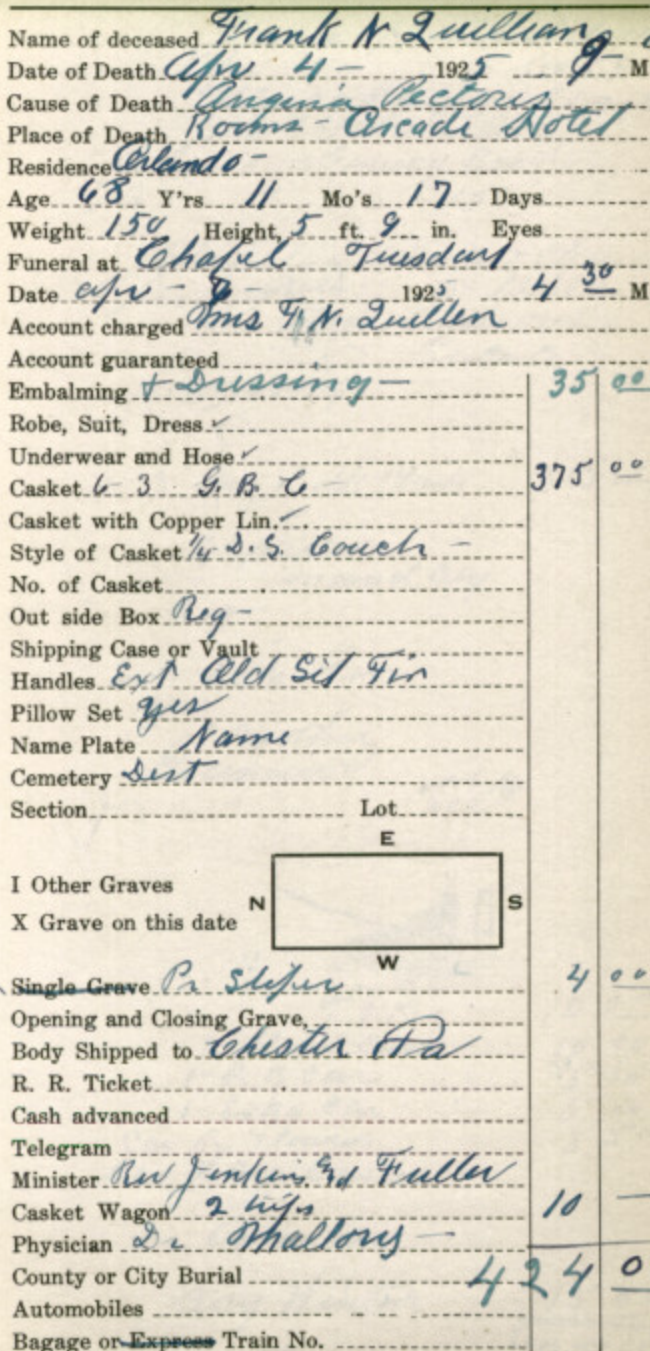 Name of deceased Frank N Quillian 9
Date of Death Apr 4 - 1925 9 M
Cause of Death Anginia Pectoris
Place of Death Rooms - Arcade Hotel
Residence Orlando -
Age 68 Y'rs 11 Mo's 17 Days
Weight 150 Height, 5 ft. 9 in. Eyes
Funeral at Chapel Tuesday
Date Apr - - 1925 4 30 M
Account charged Mrs F. N. Quillen
Account guaranteed
Embalming & Dressing - 35 00
Robe, Suit, Dress ✓
Underwear and Hose ✓
Casket 6-3 G. B. C - 375 00
Casket with Copper Lin. ✓
Style of Casket 1/4 D. S. Couch -
No. of Casket
Out side Box Reg -
Shipping Case or Vault
Handles Ext Old Sil Fin
Pillow Set yes
Name Plate Name
Cemetery Dest
Section Lot
E
I Other Graves
N S
X Grave on this date
W
Single Grave Pr Slip 4 00
Opening and Closing Grave,
Body Shipped to Chester Pa
R. R. Ticket
Cash advanced
Telegram
Minister Rev Jenkins Ed Fuller
Casket Wagon 2 trips 10 —
Physician Dr Mallory -
County or City Burial 424 0
Automobiles
Bagage or Express Train No.